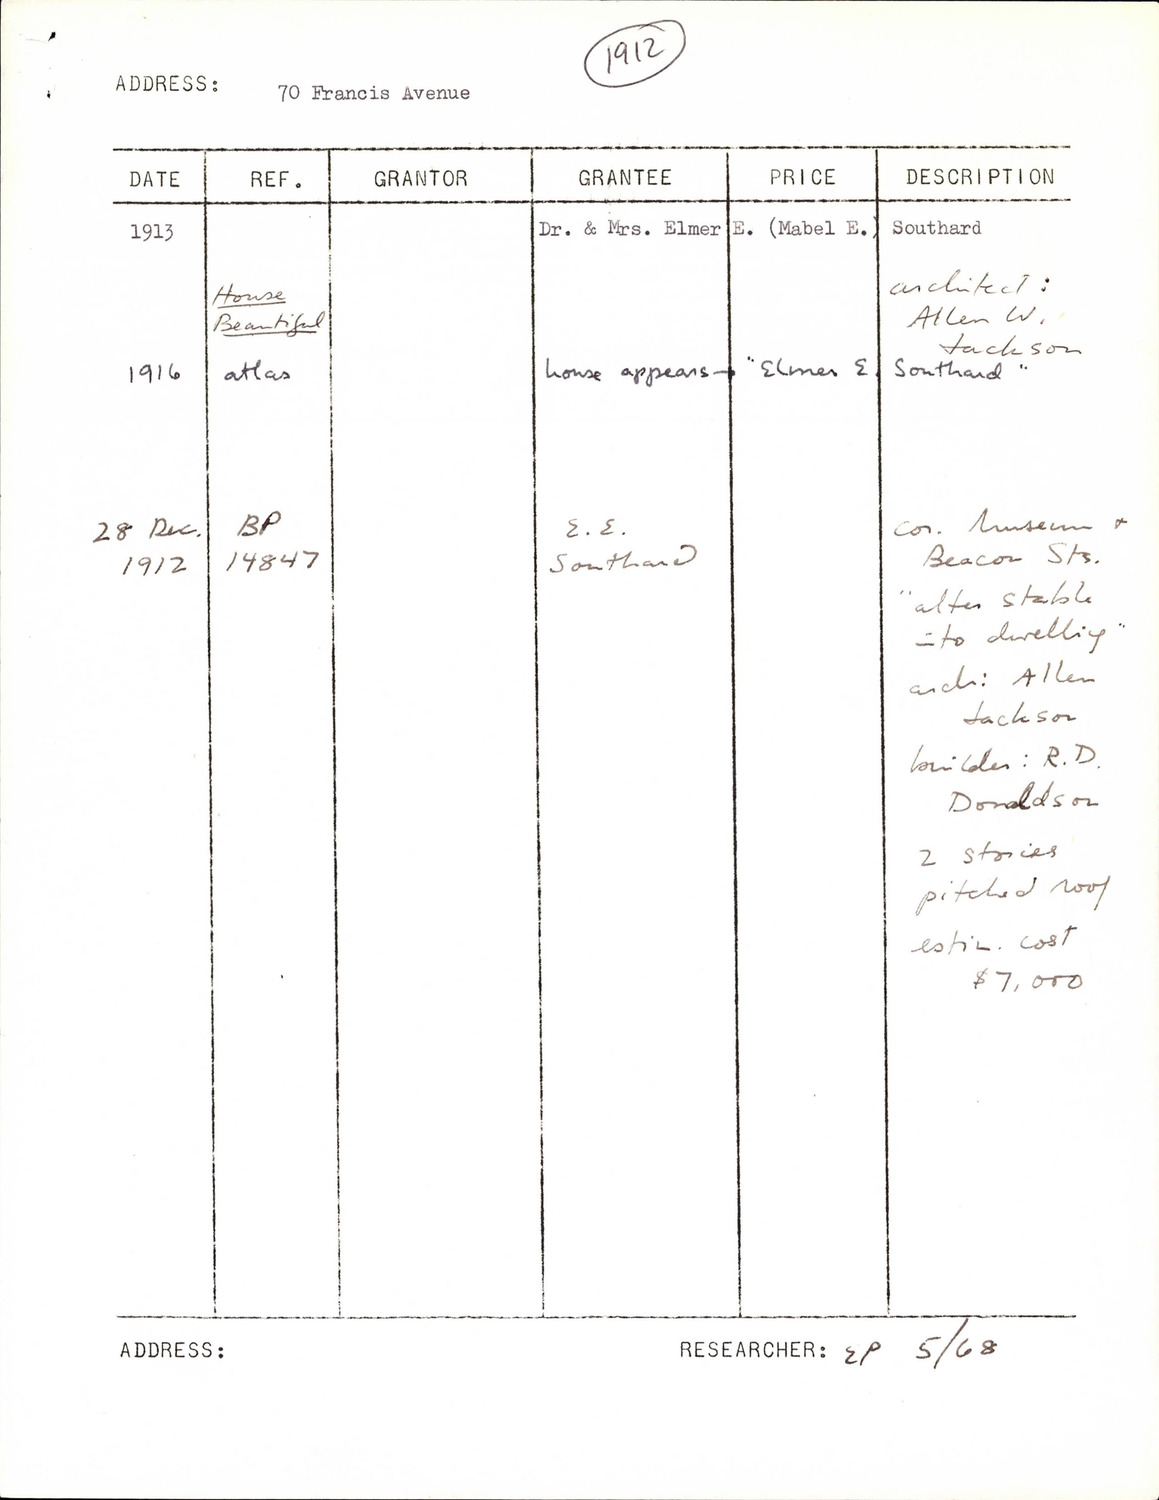 1912
ADDRESS: 70 Francis Avenue
DATE REF. GRANTOR GRANTEE PRICE DESCRIPTION
1913 Dr. & Mrs. Elmer E. (Mabel E.) Southard
House
Beautiful
architect:
Allen W.
Jackson
1916 atlas house appears→ "Elmer E. Southard"
28 Dec. BP E. E. cor. Museum +
1912 14847 Southard Beacon Sts.
"alter stable
into dwelling"
arch: Allen
Jackson
builder: R.D.
Donaldson
2 stories
pitched roof
estim. cost
$7,000
ADDRESS: RESEARCHER: EP 5/68